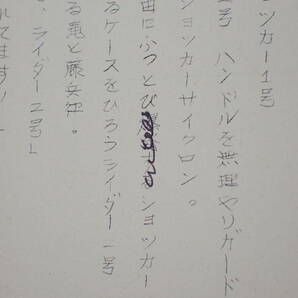 ョッカー1号
号 ハンドルを無理やりガード
ショッカーサイクロン。
宙にふっとび ショッカー
るケースをひろうライダー一号
る亀と藤兵ヱ。
、ライダー2号」
れてます!」